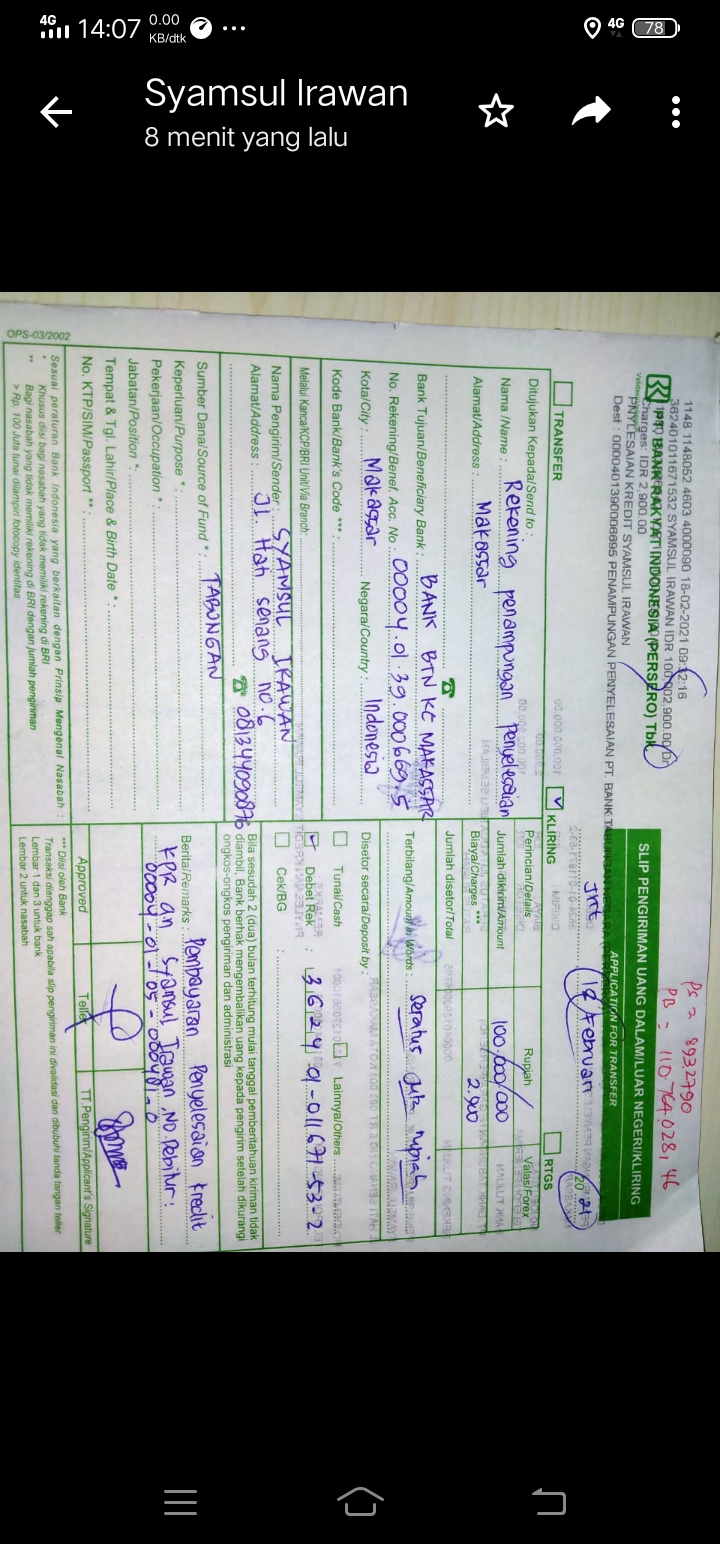 4G 14:07 0.00 KB/dtk ... 4G 78
Syamsul Irawan
8 menit yang lalu
1148 1148052 4603 4000090 18-02-2021 09:12:16
362401011671532 SYAMSUL IRAWAN IDR 100,002,900.00 Dr
PT BANK RAKYAT INDONESIA (PERSERO) Tbk
Charges: IDR 2,900.00
PNYLESAIAN KREDIT SYAMSUL IRAWAN
Dest : 0000401390006695 PENAMPUNGAN PENYELESAIAN PT. BANK
PS = 8932790
PB = 110.764.028,46
SLIP PENGIRIMAN UANG DALAM/LUAR NEGERI/KLIRING
APPLICATION FOR TRANSFER
18 Februari 20 21
TRANSFER
KLIRING
RTGS
Ditujukan Kepada/Send to :
Nama /Name : Rekening penampungan Penyelesaian
Alamat/Address : Makassar
Bank Tujuan/Beneficiary Bank : BANK BTN KC MAKASSAR
No. Rekening/Benef. Acc. No : 00004.01.39.000669.5
Kota/City : Makassar Negara/Country : Indonesia
Kode Bank/Bank's Code *** :
Melalui Kanca/KCP/BRI Unit/Via Branch:
Nama Pengirim/Sender : SYAMSUL IRAWAN
Alamat/Address : Jl. Hati senang no. 6
081344090876
Sumber Dana/Source of Fund * : TABUNGAN
Keperluan/Purpose * :
Pekerjaan/Occupation * :
Jabatan/Position * :
Tempat & Tgl. Lahir/Place & Birth Date * :
No. KTP/SIM/Passport ** :
Sesuai peraturan Bank Indonesia yang berkaitan dengan Prinsip Mengenal Nasabah :
* Khusus diisi bagi nasabah yang tidak memiliki rekening di BRI
** Bagi nasabah yang tidak memiliki rekening di BRI dengan jumlah pengiriman
> Rp. 100 Juta tunai dilampiri fotocopy identitas
OPS-03/2002
Perincian/Details Rupiah Valas/Forex
Jumlah dikirim/Amount 100.000.000
Biaya/Charges *** 2.900
Jumlah disetor/Total
Terbilang/Amount in Words : seratus juta rupiah
Disetor secara/Deposit by :
Tunai/Cash Lainnya/Others
Debet Rek : 3624-01-011671-53-2
Cek/BG :
Bila sesudah 2 (dua) bulan terhitung mulai tanggal pemberitahuan kiriman tidak
diambil, Bank berhak mengembalikan uang kepada pengirim setelah dikurangi
ongkos-ongkos pengiriman dan administrasi
Berita/Remarks : Pembayaran Penyelesaian kredit
KPR an Syamsul Irawan, No Debitur :
Approved Teller TT.Pengirim/Applicant's Signature
*** Diisi oleh Bank
Transaksi dianggap sah apabila slip pengiriman ini divalidasi dan dibubuhi tanda tangan teller
Lembar 1 dan 3 untuk bank
Lembar 2 untuk nasabah